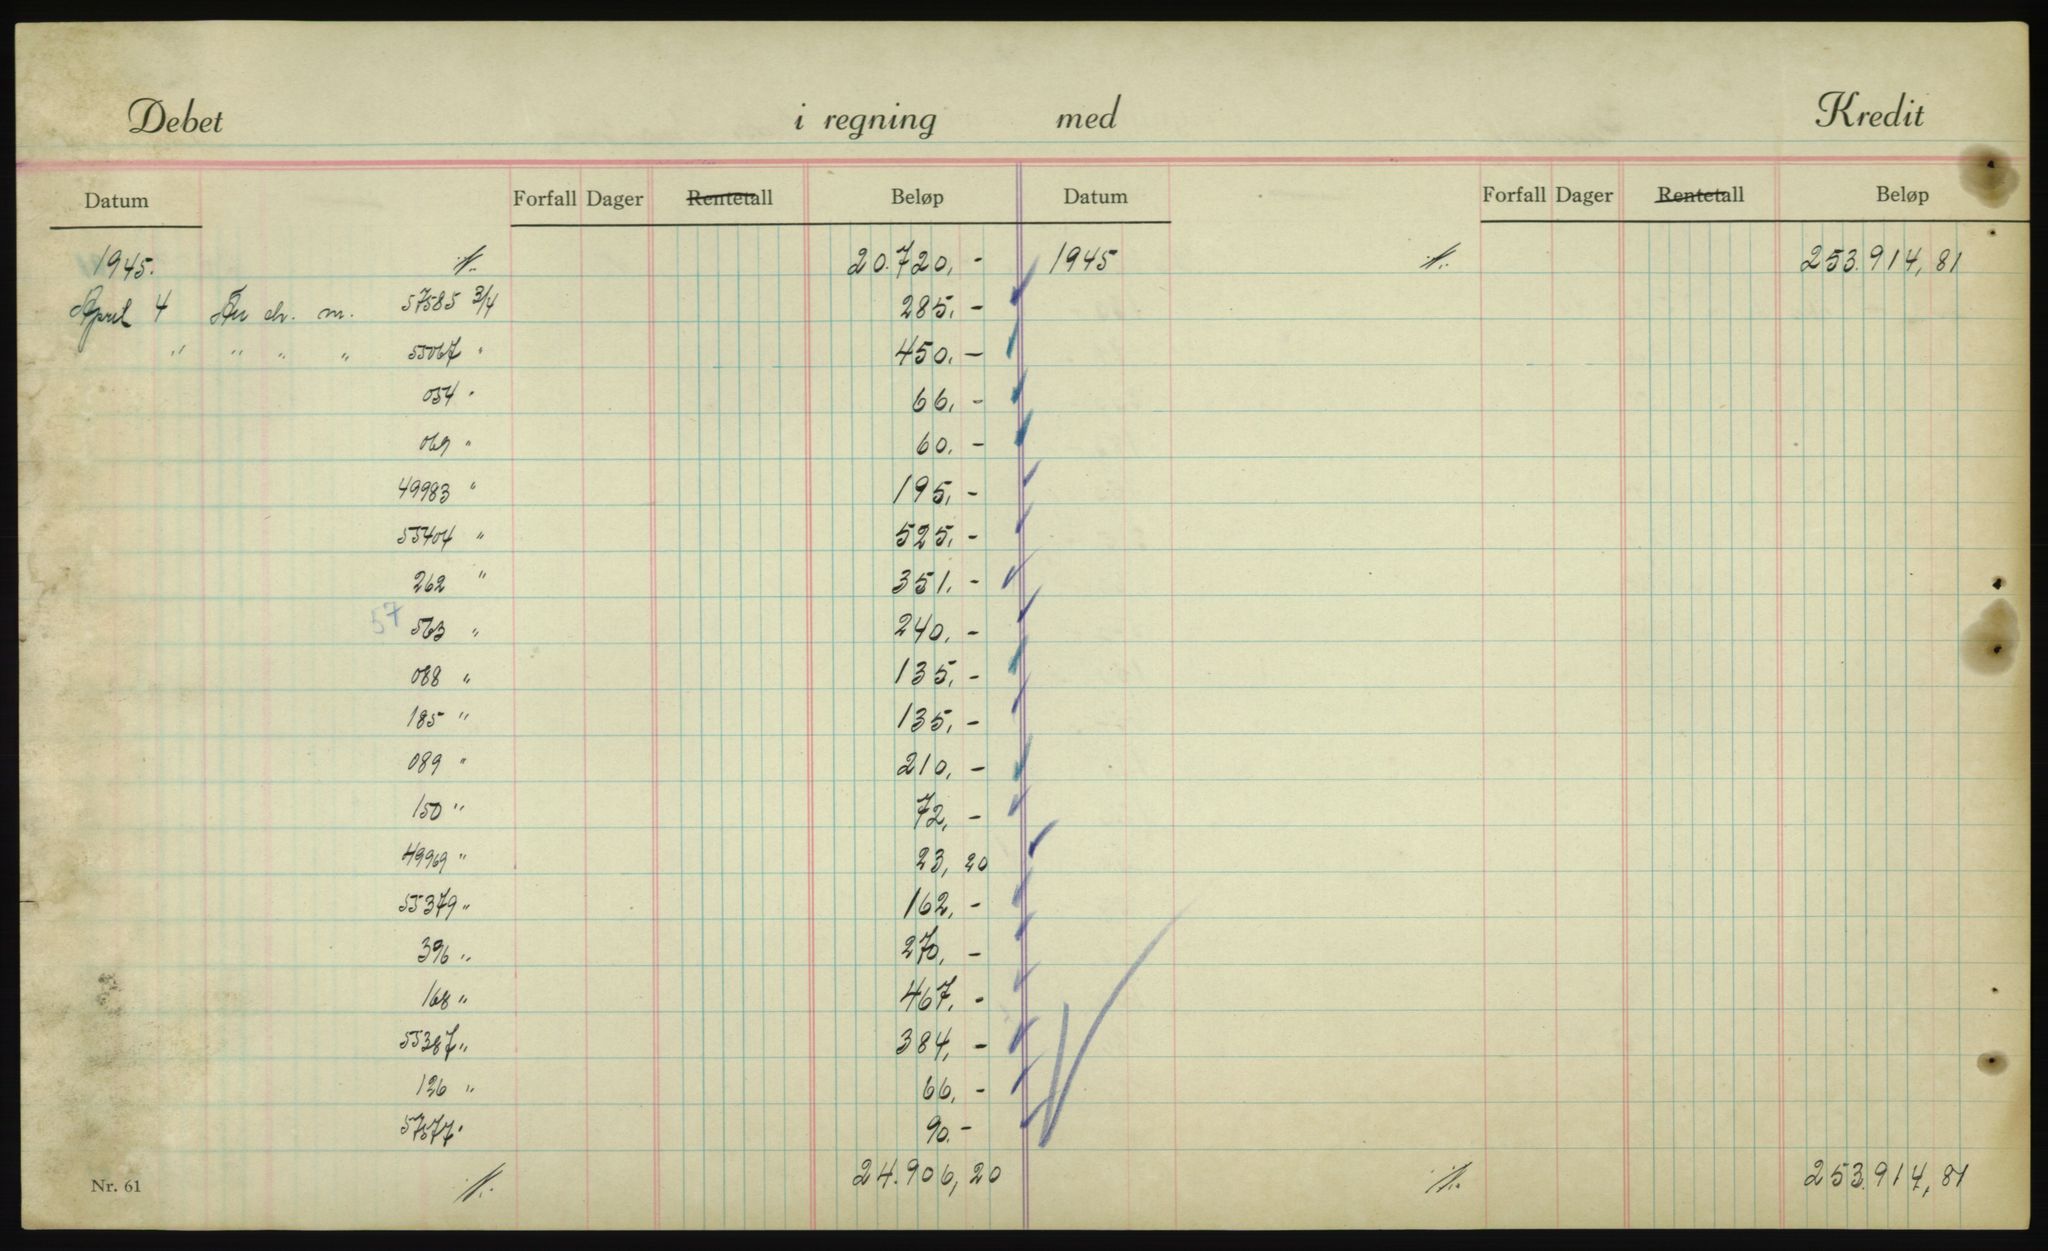 Debet i regning med Kredit
Datum Forfall Dager Rentetall Beløp Datum Forfall Dager Rentetall Beløp
1945. 20.720,- 1945 253.914,81
April 4 An ch. m. 57585 3/4 285,-
" " " " 55067 " 450.-
054 " 66,-
069 " 60.-
49983 " 195,-
55404 " 525,-
262 " 351.-
57 563 " 240,-
088 " 135,-
185 " 135,-
089 " 210,-
150 " 72,-
49969 " 23,20
55379 " 162,-
396 " 270,-
168 " 467,-
55387 " 384,-
126 " 66,-
57577 " 90.-
Nr. 61 24.906,20 253.914,81